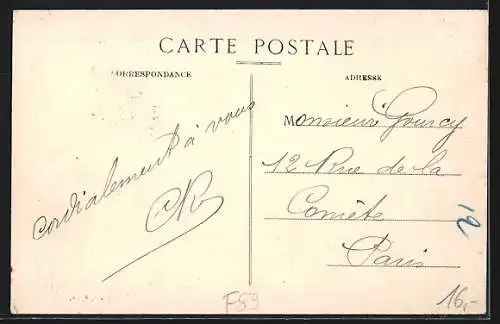 CARTE POSTALE
CORRESPONDANCE
ADRESSE
cordialement à vous
CR
Monsieur Gourcy
12 Rue de la
Comète
Paris
12
F89
16,-